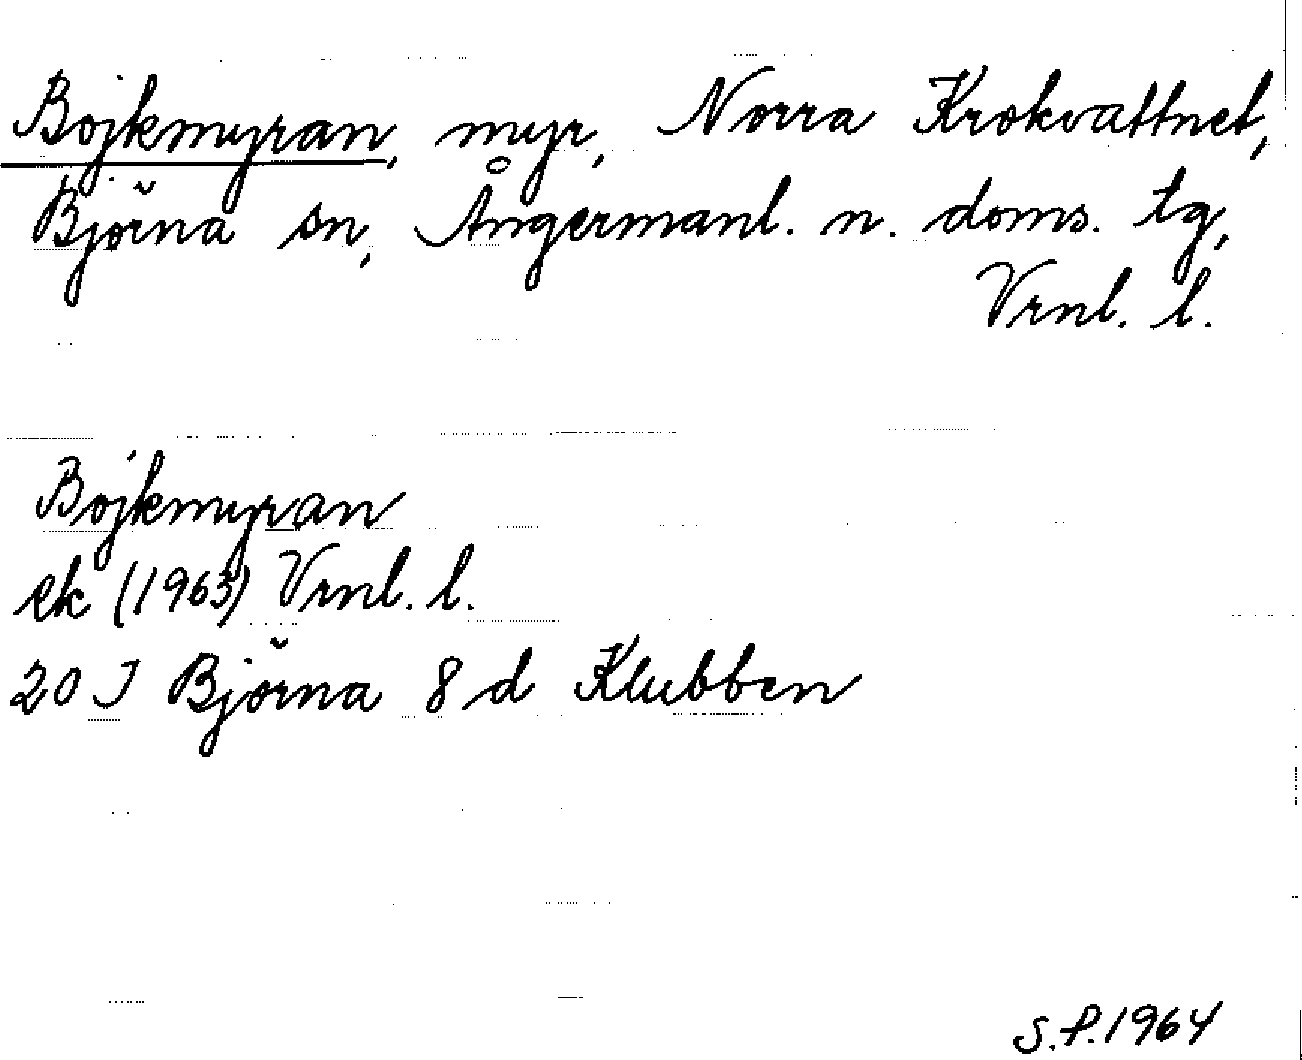 Bojkmyran, myr, Norra Krokvattnet,
Björna sn, Ångermanl. n. doms. tg,
Vrnl. l.
Bojkmyran
ek (1963) Vrnl. l.
20 J Björna 8 d Klubben
S.P.1964